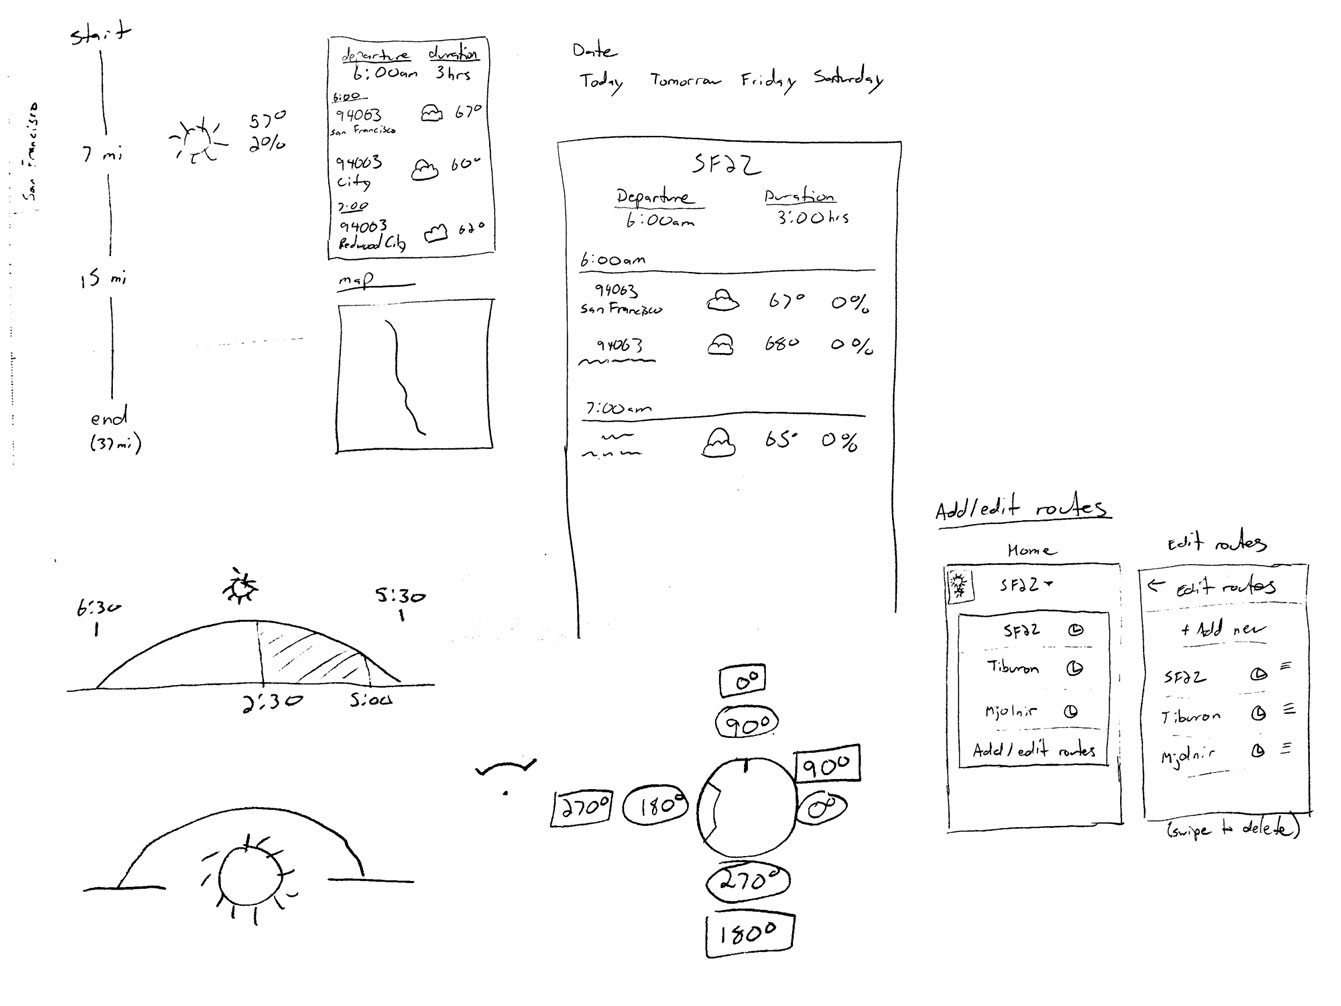 start
San Francisco
7 mi
57°
20%
15 mi
end
(37mi)
departure duration
6:00am 3hrs
6:00
94063 67°
San Francisco
94063 60°
City
7:00
94063 62°
Redwood City
map
Date
Today Tomorrow Friday Saturday
SF2Z
Departure Duration
6:00am 3:00hrs
6:00am
94063 67° 0%
San Francisco
94063 68° 0%
7:00am
65° 0%
6:30 5:30
2:30 5:00
0°
90°
270° 180° 90°
0°
270°
180°
Add/edit routes
Home
SF2Z
SF2Z
Tiburon
Mjolnir
Add/edit routes
Edit routes
← Edit routes
+ Add new
SF2Z
Tiburon
Mjolnir
(swipe to delete)